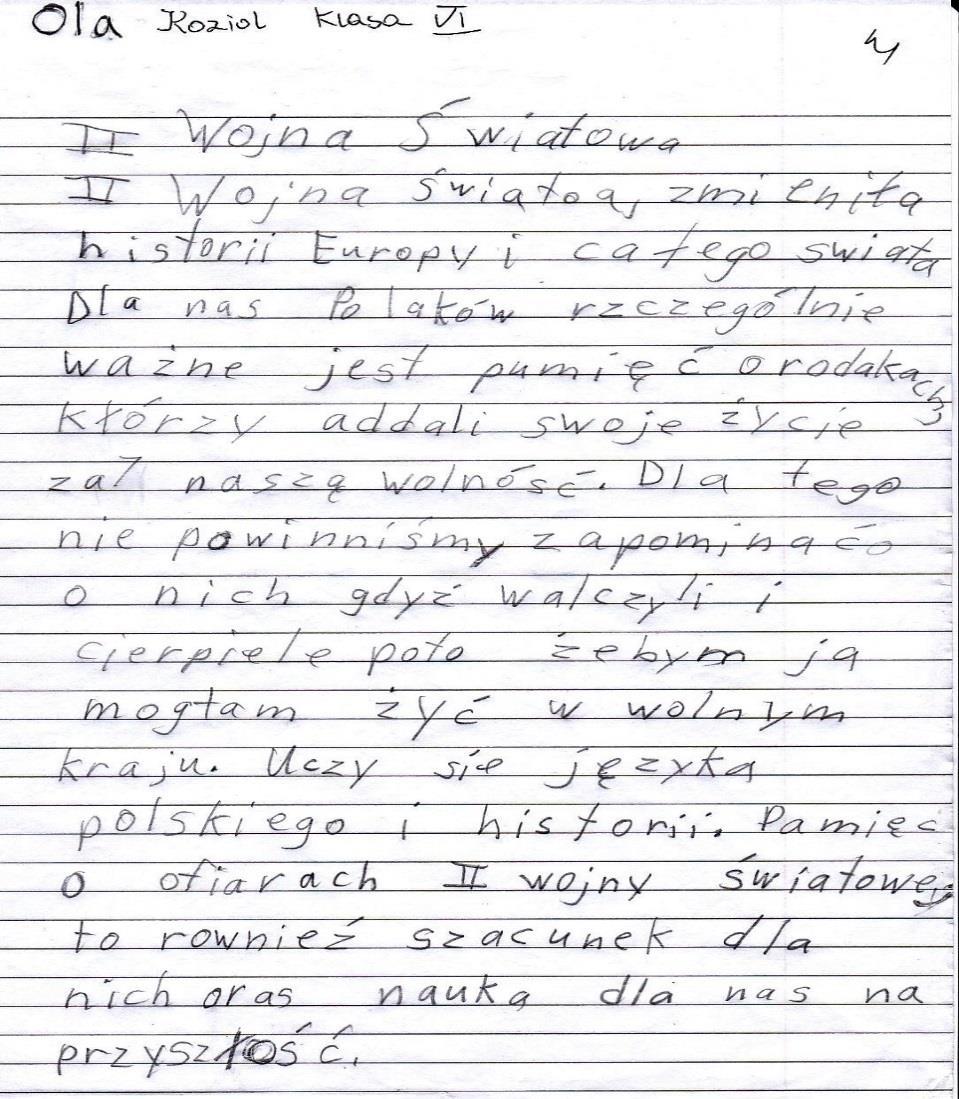 Ola Kozioł Klasa VI
4
II Wojna Światowa
II Wojna światoa, zmieniła
historii Europy i całego swiata
Dla nas Polaków rzczególnie
ważne jest pumięć o rodakach,
którzy addali swoje życie
za naszą wolnóść. Dla tego
nie powinniśmy zapominaćo
o nich gdyż walczyli i
cierpiele poto żebym ja
mogłam żyć w wolnym
kraju. Uczy się języka
polskiego i historii. Pamięc
o ofiarach II wojny światowej
to rownież szacunek dla
nich oras nauka dla nas na
przyszłość.